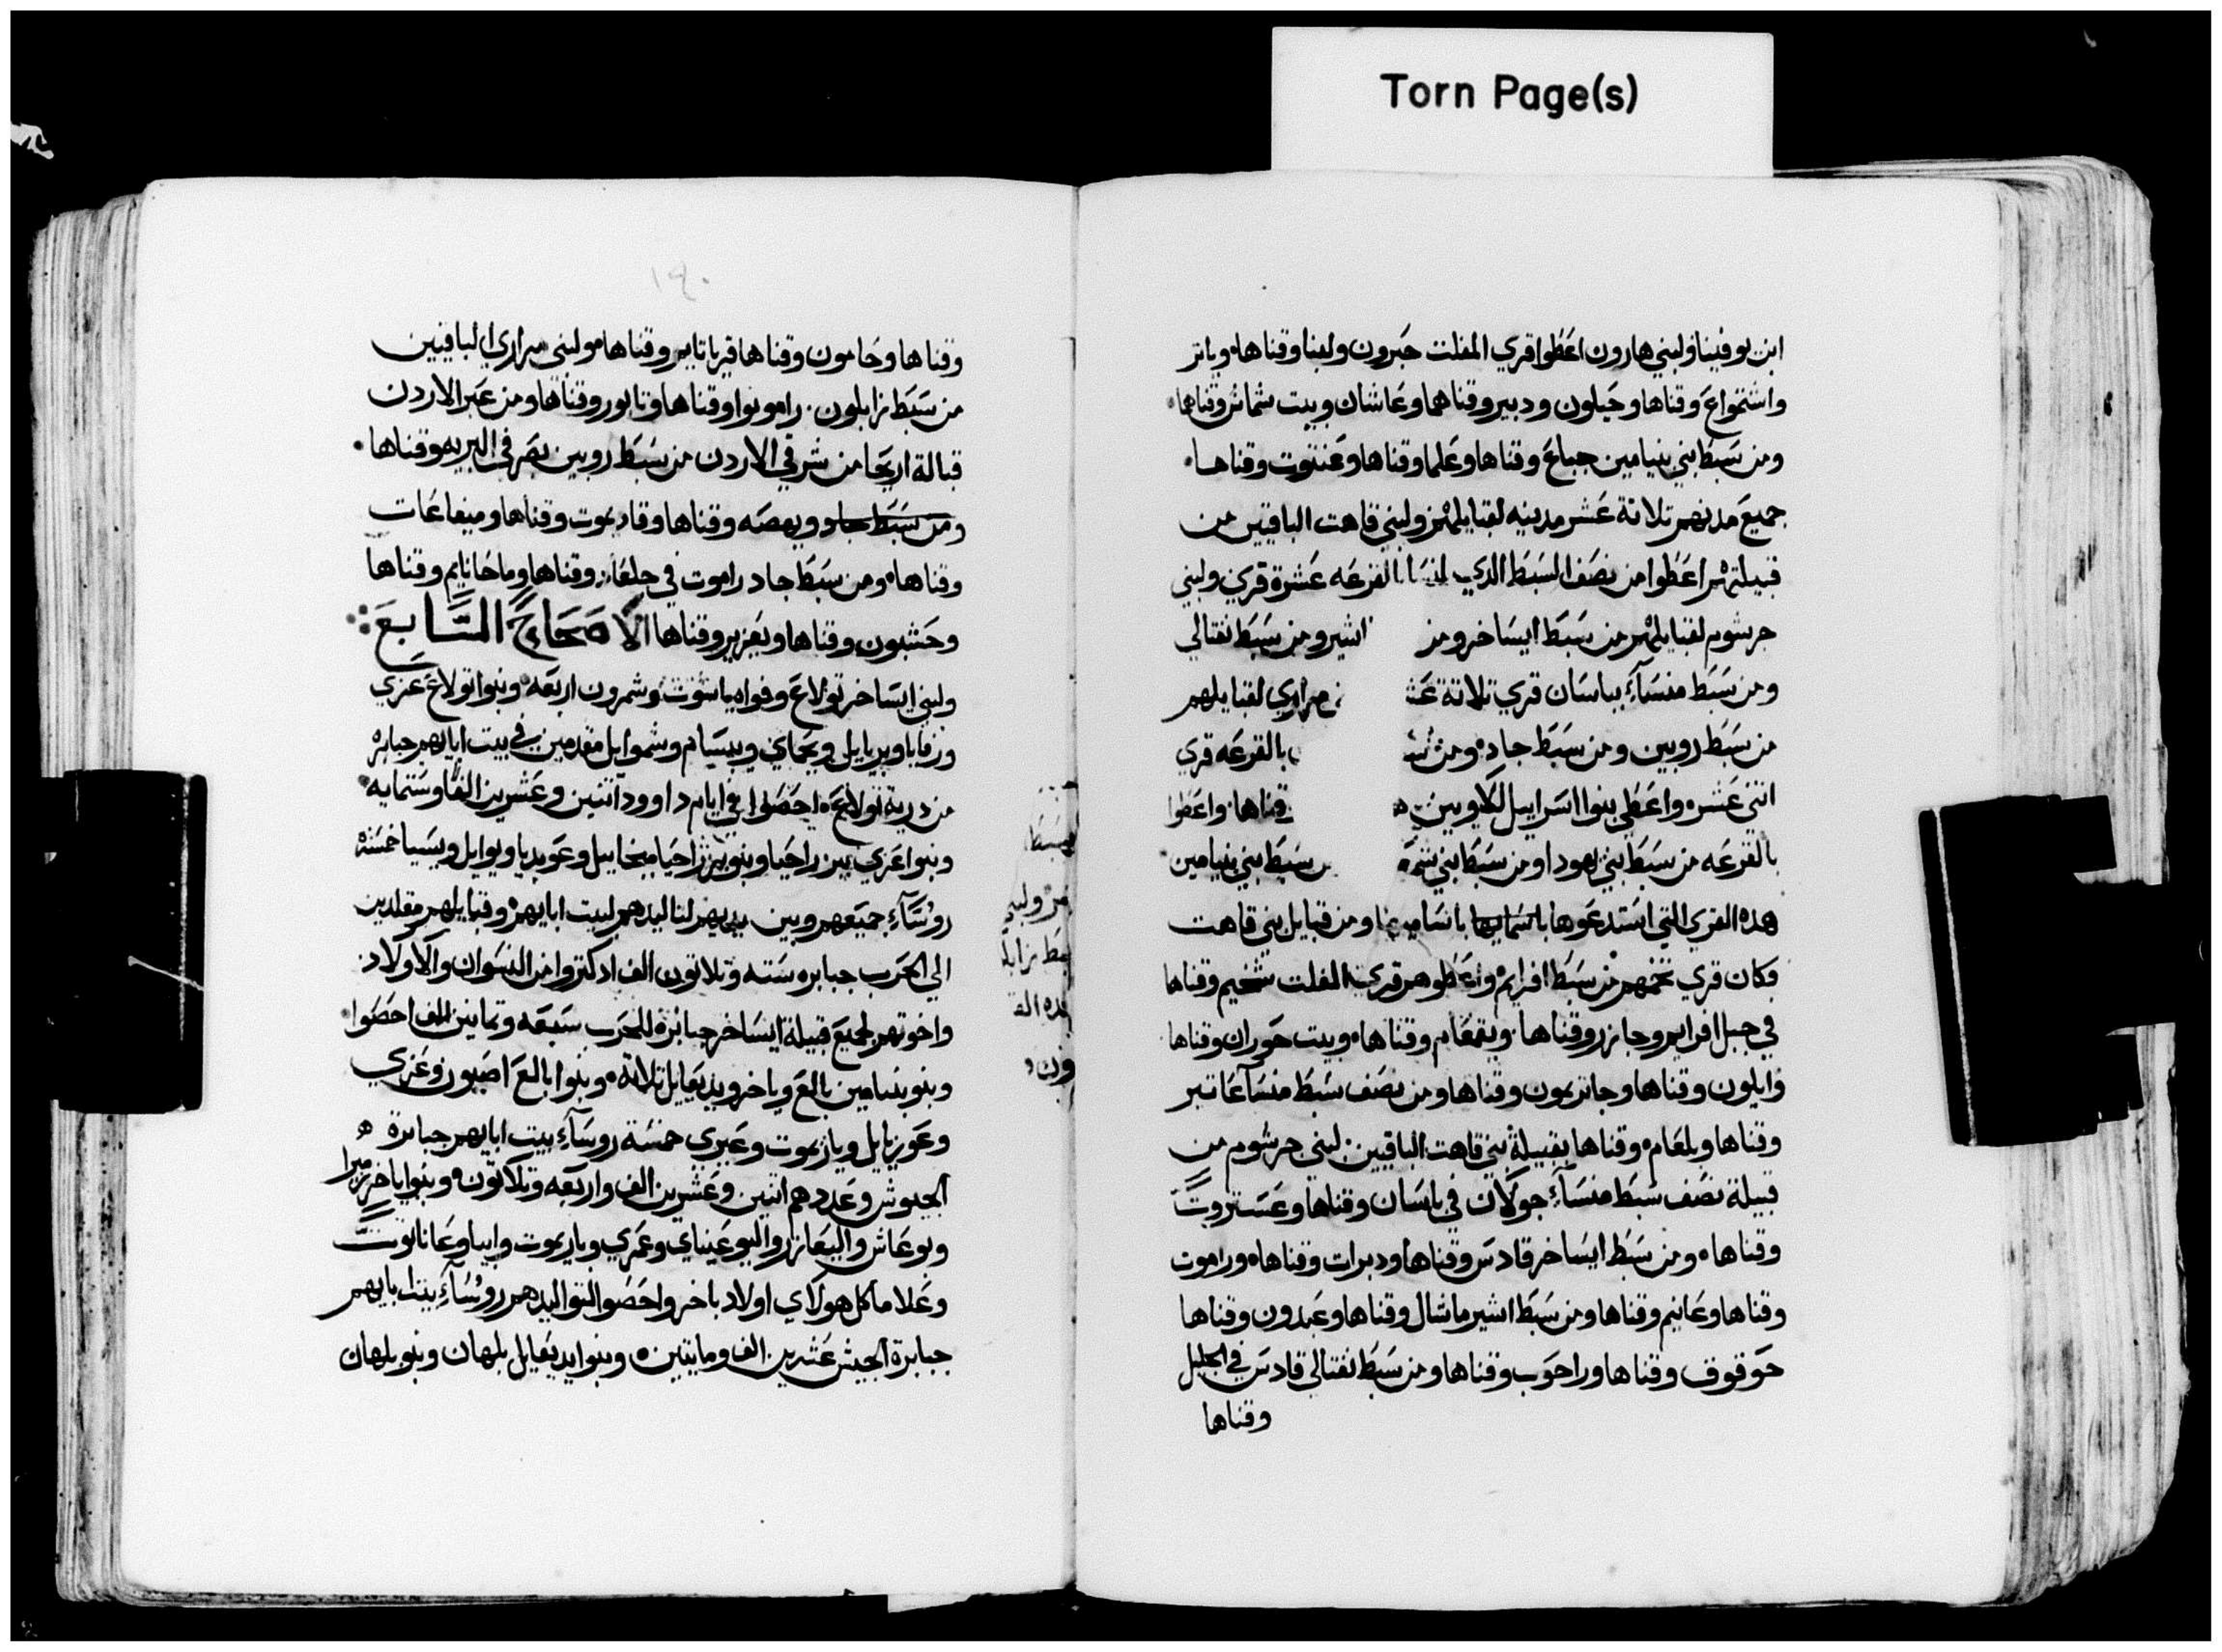 Torn Page(s)
ابن يوفينا ولبني هارون اعطوا قري المفلت حبرون ولبنا وقناها وياتر
واشتمواع وقناها وحيلون ودبير وقناهما وعاشان وبيت شماش وقناها
ومن سبط بني بنيامين جباع وقناها وعلما وقناها وعنتوت وقناها
جميع مدنهم تلاتة عشر مدينه لقبايلهم ولبني قاهت الباقيين من
قبيلتهم اعطوا من نصف السبط الدي لمنسا بالقرعه عشرة قري ولبني
جرشوم لقبايلهم من سبط ايساخر ومن اشير ومن سبط نفتالي
ومن سبط منساء بباسان قري تلاتة عش مراري لقبايلهم
من سبط روبين ومن سبط جاد ومن س بالقرعه قري
اتني عشره واعطي بنوا اسراييل للاويين وقناها واعطوا
بالقرعه من سبط بني يهودا ومن سبط بني شم سبط بني بنيامين
هده القري التي استدعوها باساميها ومن قبايل بني قاهت
فكان قري تخمهم من سبط افرايم واعطوهم قري المفلت شخيم وقناها
في جبل افرايم وجازر وقناها ويقمعام وقناها وبيت حوران وقناها
وايلون وقناها وجاترمون وقناها ومن نصف سبط منسا عاتير
وقناها وبلعام وقناها بقبيلة بني قاهت الباقيين لبني جرشوم من
قبيلة نصف سبط منساء جولان في باسان وقناها وعستروت
وقناها ومن سبط ايساخر قادس وقناها ودبرات وقناها وراموت
وقناها وعانيم وقناها ومن سبط اشير ماشال وقناها وعبدون وقناها
حوقوق وقناها وراحوب وقناها ومن سبط نفتالي قادس في الجليل
وقناها
١٤٠
وقناها وحامون وقناها قرياتايم وقناها مولبني مراري الباقيين
من سبط زابلون رامونوا وقناها وتابور وقناها ومن عبر الاردن
قبالة اريحا من شرقي الاردن من سبط روبين بصر في البريه وقناها
ومن سبط جاد ويهصه وقناها وقاديموت وقناها وميفاعات
وقناها ومن سبط جاد راموت في جلعاد وقناها وماحانايم وقناها
وحشبون وقناها ويعزير وقناها الاصحاح السابع
ولبني ايساخر تولاع وفواه ياشوت وشمرون اربعه وبنوا تولاع عزي
ورفايا ويريايل ويحماي ويبسام وشموايل مقدمين في بيت ابايهم جبابره
من درية تولاع احصوا في ايام داوود اتنين وعشرين الفا وستمايه
وبنوا عزي يزراحيا وبنو يزراحيا ميخاييل وعوبديا ويوايل ويسيا خمسه
روساء جميعهم وبين يديهم لتاليدهم لبيت ابايهم وقبايلهم مقلدين
الي الحرب جبابره سته وتلاتون الف ادكتروا من النسوان والاولاد
واخوتهم لجميع قبيلة ايساخر جبابره للحرب سبعه وتمانين الف احصوا
وبنو بنيامين بالع وباخر ويديعاييل تلاتة وبنوا بالع اصبون وعزي
وعوزيايل ويازيموت وعيري خمسة روساء بيت ابايهم جبابرة
الجيوش وعددهم اتنين وعشرين الف واربعه وتلاتون وبنوا باخر زميرا
ويوعاش واليعازر واليوعيناي وعمري وياريموت وابيا وعاناتوت
وعلاما كل هولاي اولاد باخر واحصوا لتواليدهم روساء بيت ابايهم
جبابرة الجيش عشرين الف ومايتين وبنوا يديعايل بلهان وبنو بلهان